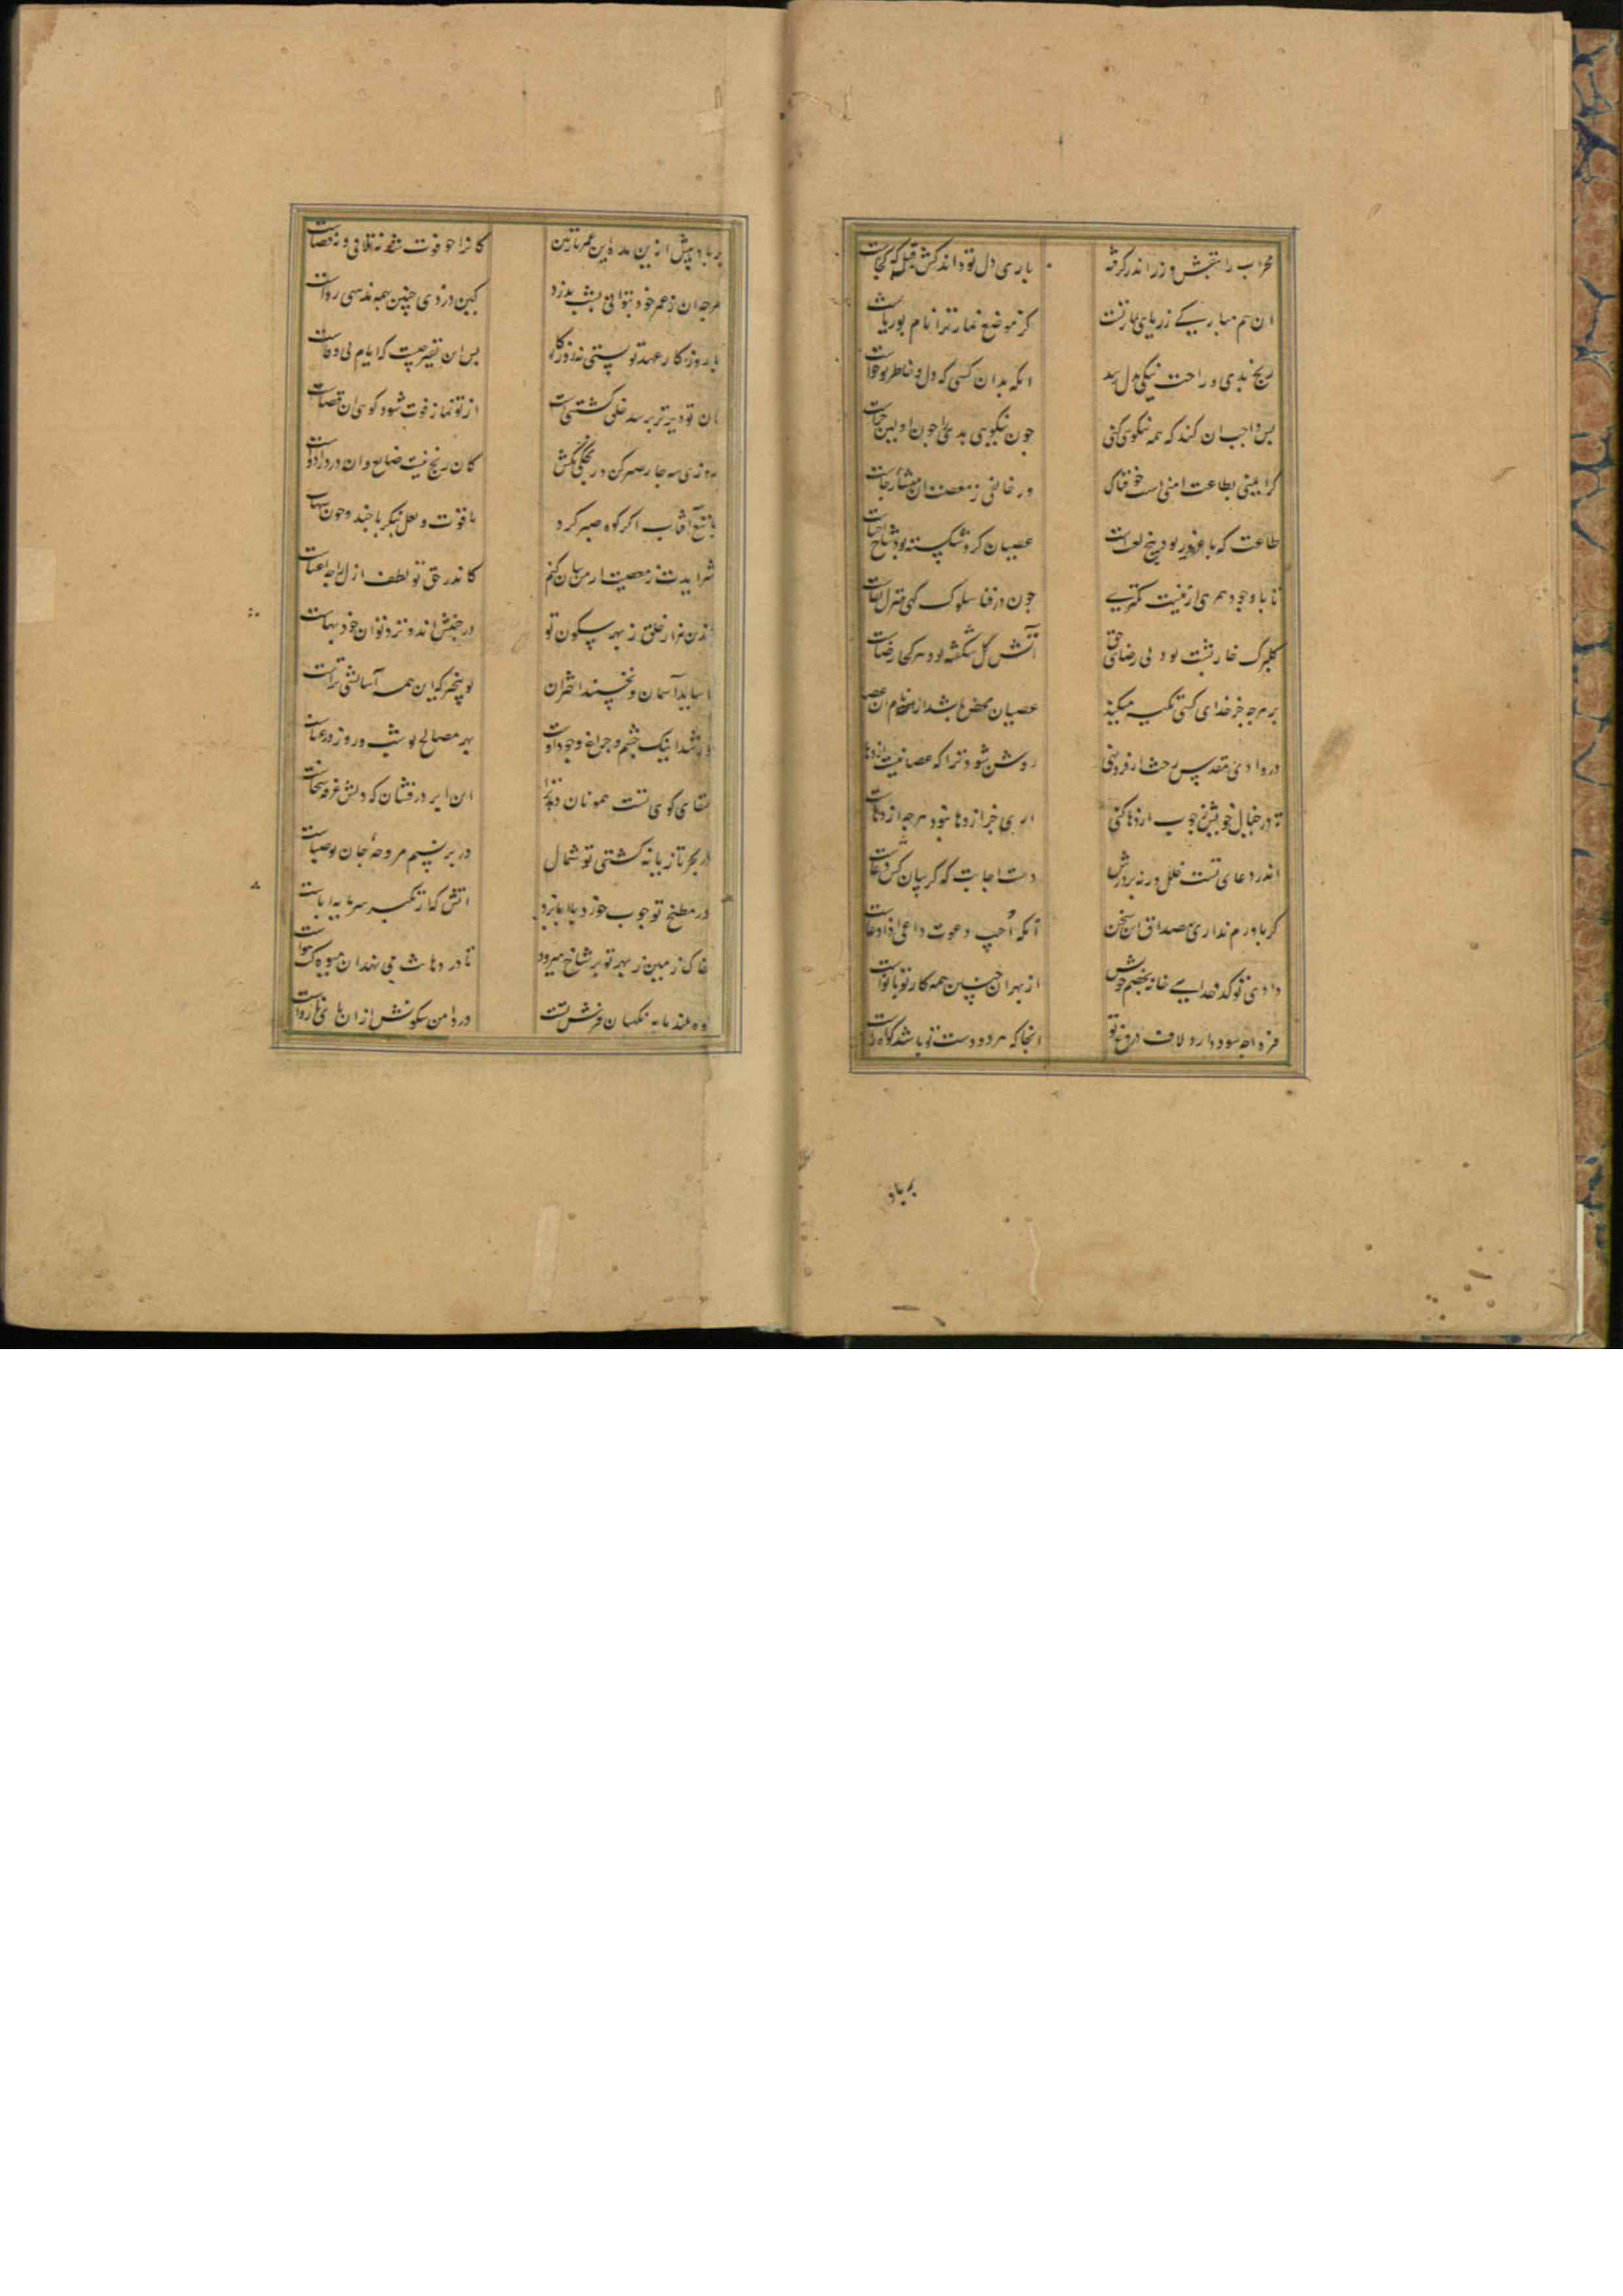 محراب را بنقش و زر اندر گرفته
باری دل تو داند کش قبله گه کجاست
ان هم مبارکی ز ریای نماز تست
کز موضع نماز ترا نام بوریاست
رنج بدی و راحت نیکی بدل رسد
انگه بدان کسی که دل و خاطر تو خواست
بس واجب ان کند که همه نیکوی کنی
چون نیکویی بدی را چون او بین جزاست
گر ایمنی بطاعت امنی است خوفناک
ور خائفی ز معصیت ان منشأ رجاست
طاعت که با غرور بود بیخ لعنت است
عصیان کزو شکسته بود شاخ
تا با وجود همرهی از نیست کمتری
چون در فنا سلوک کنی منزل بقاست
گلبرگ خار پشت بود بی رضای حق
آتش گل شکفته بود هر کجا رضاست
بر هرچه جز خدای کنی تکیه میکنید
عصیان محض باشد ار نام ان عصاست
در وادی مقدس رخت ار فرو نهی
روشن شود ترا که عصا نیست اژدهاست
تا در خیال خویش ز چوب اژدها کنی
اری جز اژدها نبود هرچه اژدهاست
اندر دعای تست خلل ورنه بر درش
دست اجابت که گریبان کش دعاست
گر باورم نداری مصداق این سخن
آنکه اُجیب دعوت داعی اذا دعاست
دادی تو کدخدایی خانه بخصم خویش
از بهر ان چنین همه کار تو با نواست
فردا چه سود دارد لاف دروغ تو
انجا که هر دو دست تو باشد گواه راست
برباد
برباد بیش ازین مده این عمر نازنین
کانرا چو فوت شد نه تلافی و نه قضاست
هرچ ان ز عمر خود بتوانی بشب بدزد
کین دزدی چنین بهمه مذهبی رواست
با روزگار عهد تو بستی نه روزگار
بس ان تقصیر چیست که ایام بی وفاست
ان تو دیر تر برسد خلق گشتی است
از تو نماز فوت شود گوی ان قضاست
روزی سه چار صبر کن در بکش
کان رنج نیست ضایع و ان درد را دواست
با تیغ آفتاب اگر کوه صبر کرد
یاقوت و لعل بنگر با خود و چون بهاست
شرم ایدت ز معصیت ار من بیان کنم
کاندر حق تو لطف ازل را چه اعتناست
چندین هزار خلق ز بهر سکون تو
در جنبش اند و نزد تو ان خود بهاست
ناساید آسمان و نخسبند اختران
تو بیخبر که این همه آسایشی تراست
خورشید اینک چشم و چراغ وجود اوست
بهر مصالح تو شب و روز در عناست
سقای کوی تست همونان
این ابر درفشان که دلش غرقه سخاست
در بحر تازیانه کشتی تو شمال
در بر نسیم مروحهٔ جان تو صباست
در مطبخ تو چوب خورد
اتش که از تکبر سرمایه اباست
خاک زمین ز بهر تو بر شاخ میرود
تا در دهانت می نهد ان میوه کت هواست
کوه بلند پایه نگهبان فرش تست
در دامن سکونش از ان پای